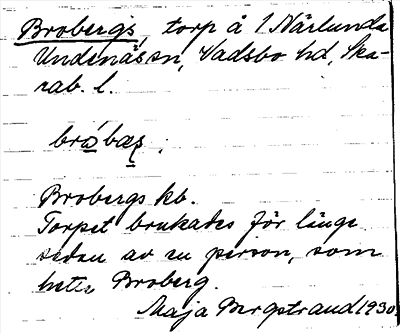 Brobergs, torp å 1 Närlunda
Undenäs sn, Vadsbo hd, Ska-
rab. l.
Brobergs kb.
Torpet brukades för länge
sedan av en person, som
hette Broberg.
Maja Bergstrand 1930.